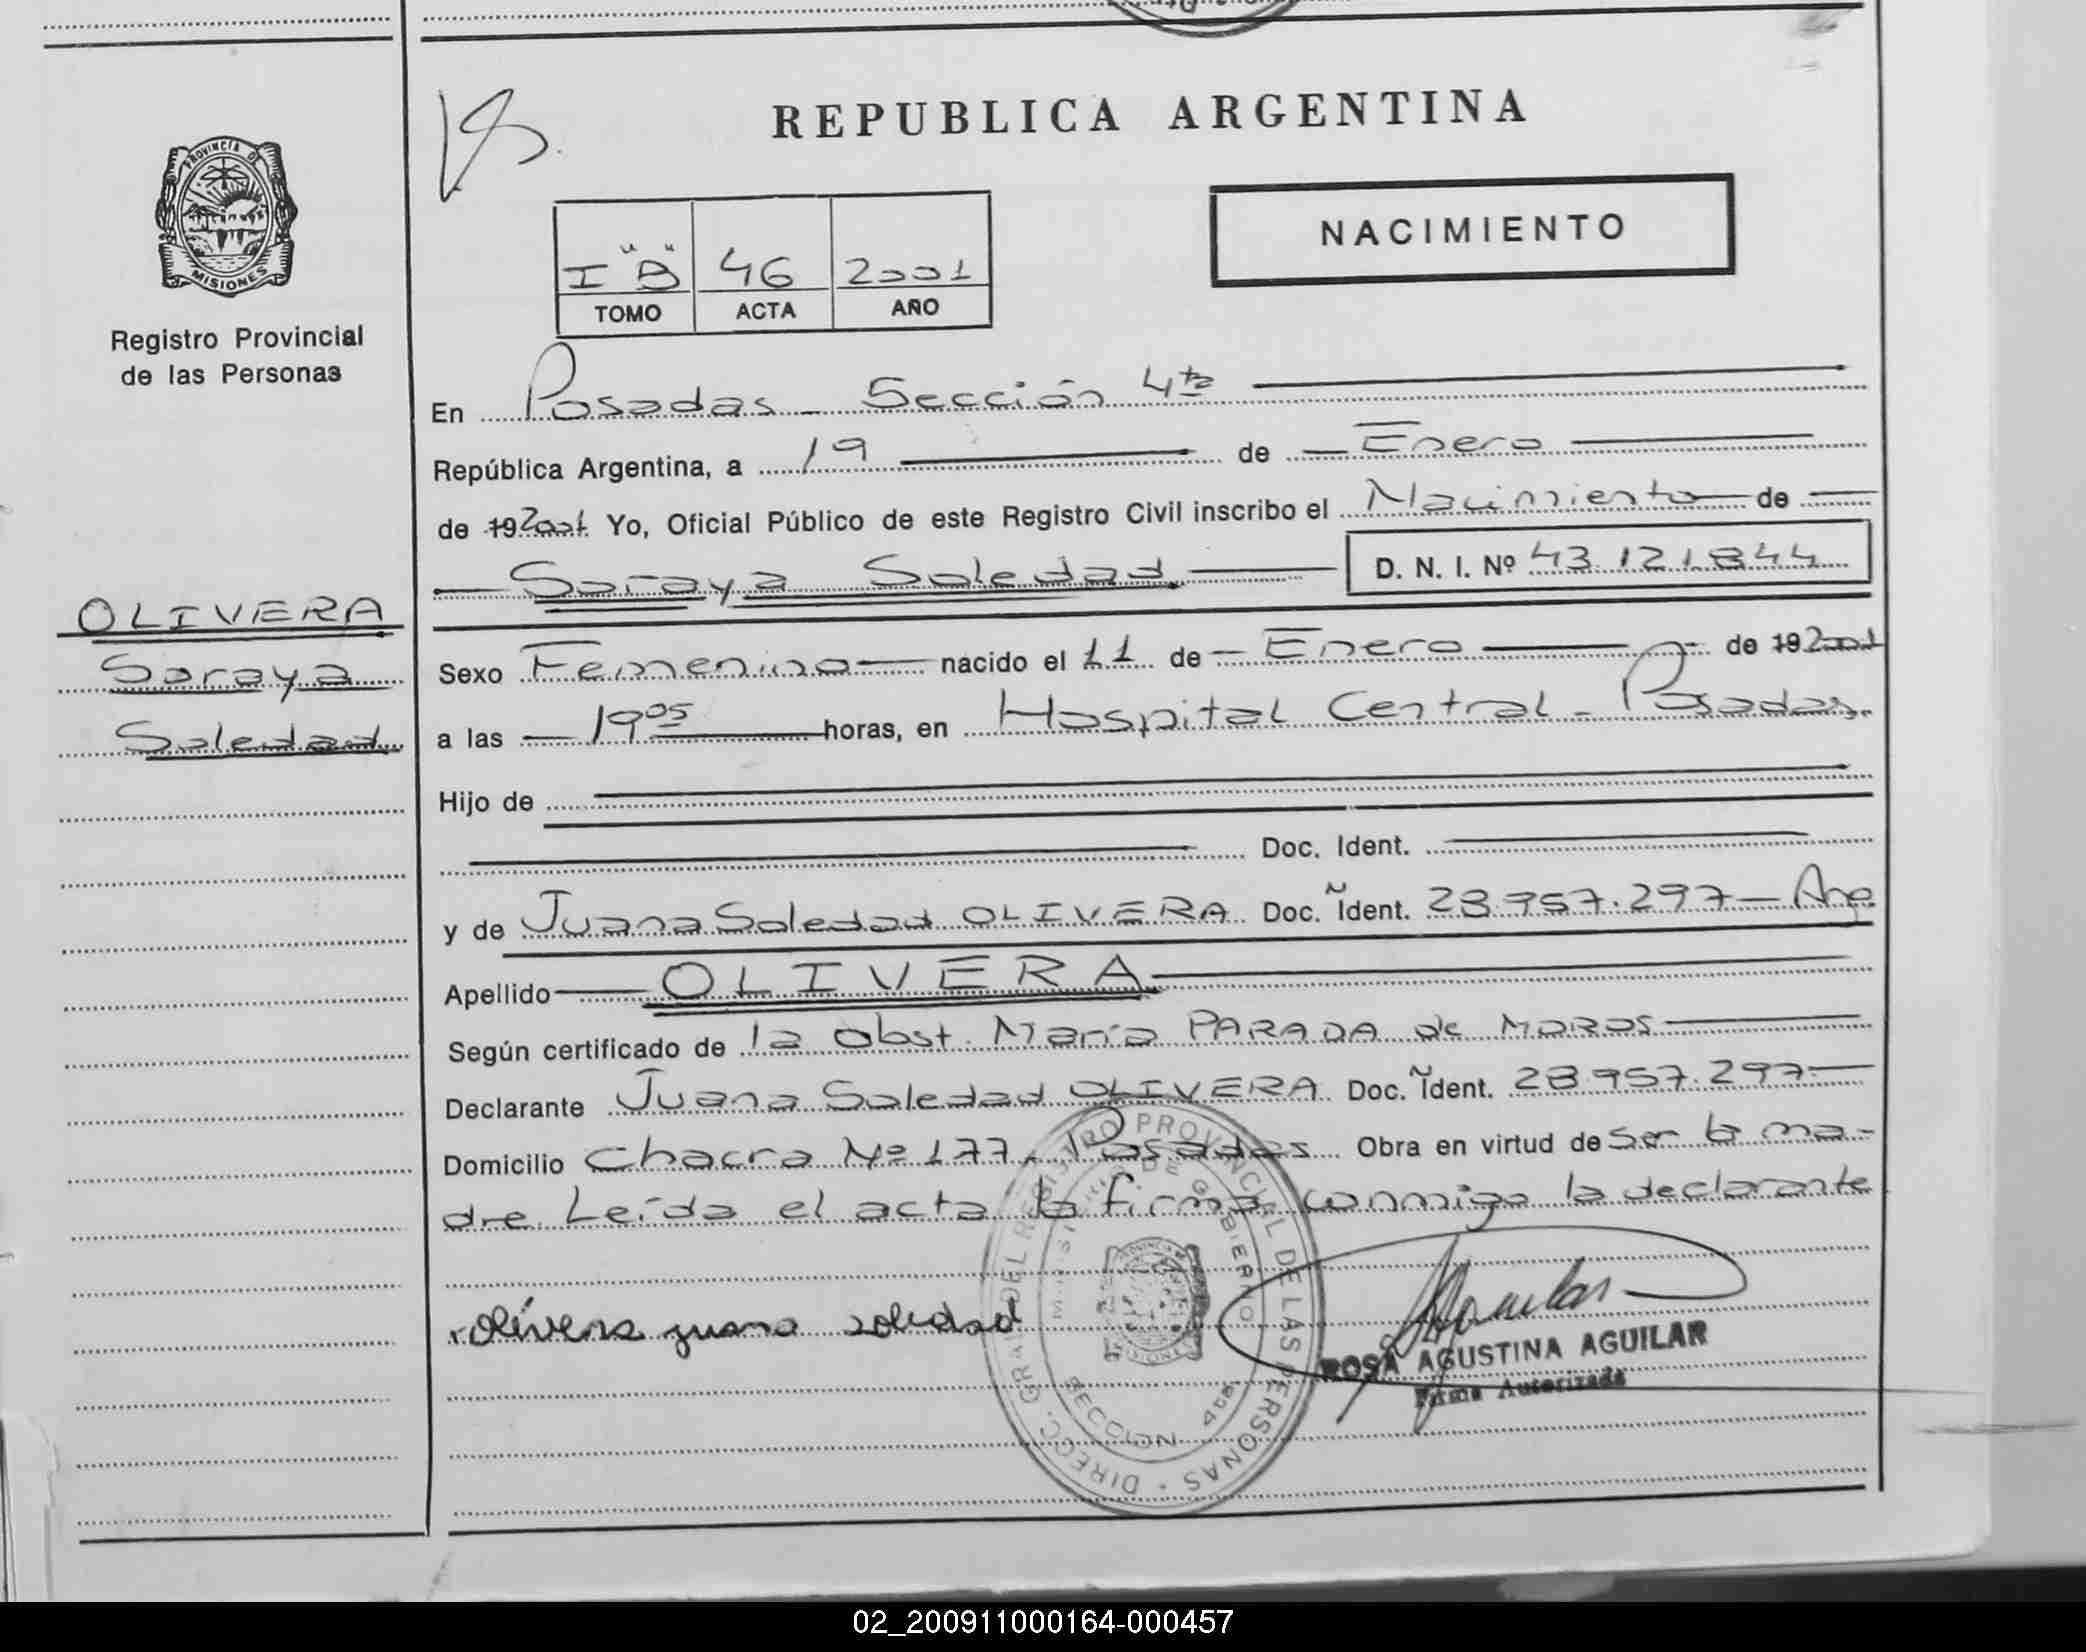 REPUBLICA ARGENTINA
PROVINCIA DE
MISIONES
Registro Provincial
de las Personas
I "B" 46 2001
TOMO ACTA AÑO
NACIMIENTO
En Posadas - Sección 4ta
República Argentina, a 19 de Enero
de 192001 Yo, Oficial Público de este Registro Civil inscribo el Nacimiento de
Soraya Soledad D. N. I. Nº 43.121.844
OLIVERA
Soraya
Soledad
Sexo Femenino nacido el 11 de Enero de 192001
a las 19 05 horas, en Hospital Central - Posadas.
Hijo de
Doc. Ident.
y de Juana Soledad OLIVERA Doc. Ident. 28.957.297 - Arg.
Apellido OLIVERA
Según certificado de la Obst. María PARADA de MOROS
Declarante Juana Soledad OLIVERA Doc. Ident. 28.957.297
Domicilio Chacra Nº 177 - Posadas Obra en virtud de ser la ma-
dre. Leída el acta la firma conmigo la declarante
olivera juana soledad
DIRECC. GRAL. DEL REGISTRO PROVINCIAL DE LAS PERSONAS
MINISTERIO DE GOBIERNO
PROVINCIA DE
MISIONES
SECCION 4ta.
Aguilar
ROSA AGUSTINA AGUILAR
Firma Autorizada
02_200911000164-000457